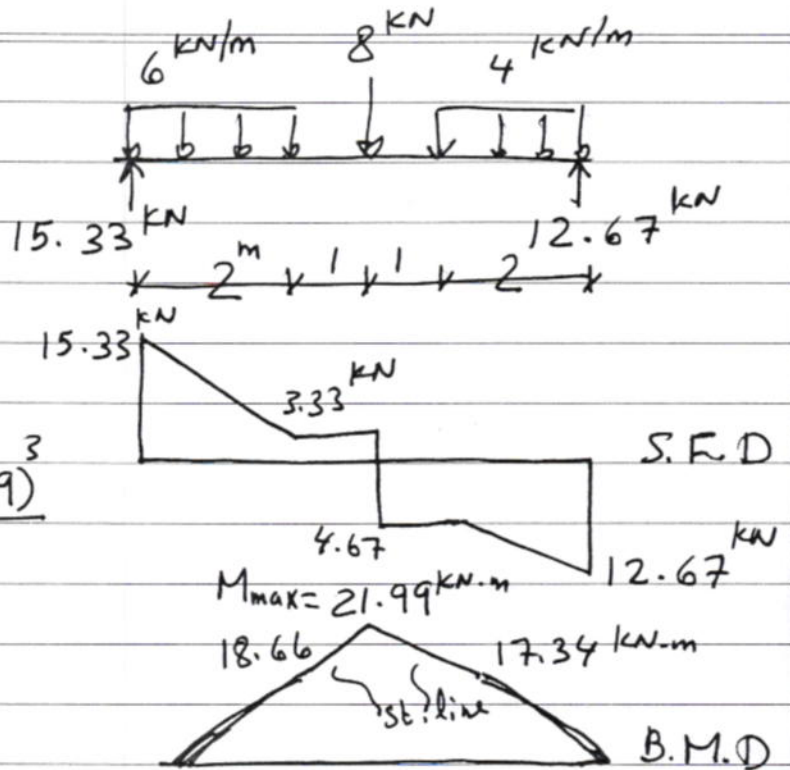 6 KN/m 8 KN 4 KN/m
15.33 KN 12.67 KN
2 m 1 1 2
15.33 KN
3.33 KN
S.F.D
3
9)
4.67
12.67 KN
Mmax= 21.99 KN.m
18.66 17.34 KN-m
st.line
B.M.D